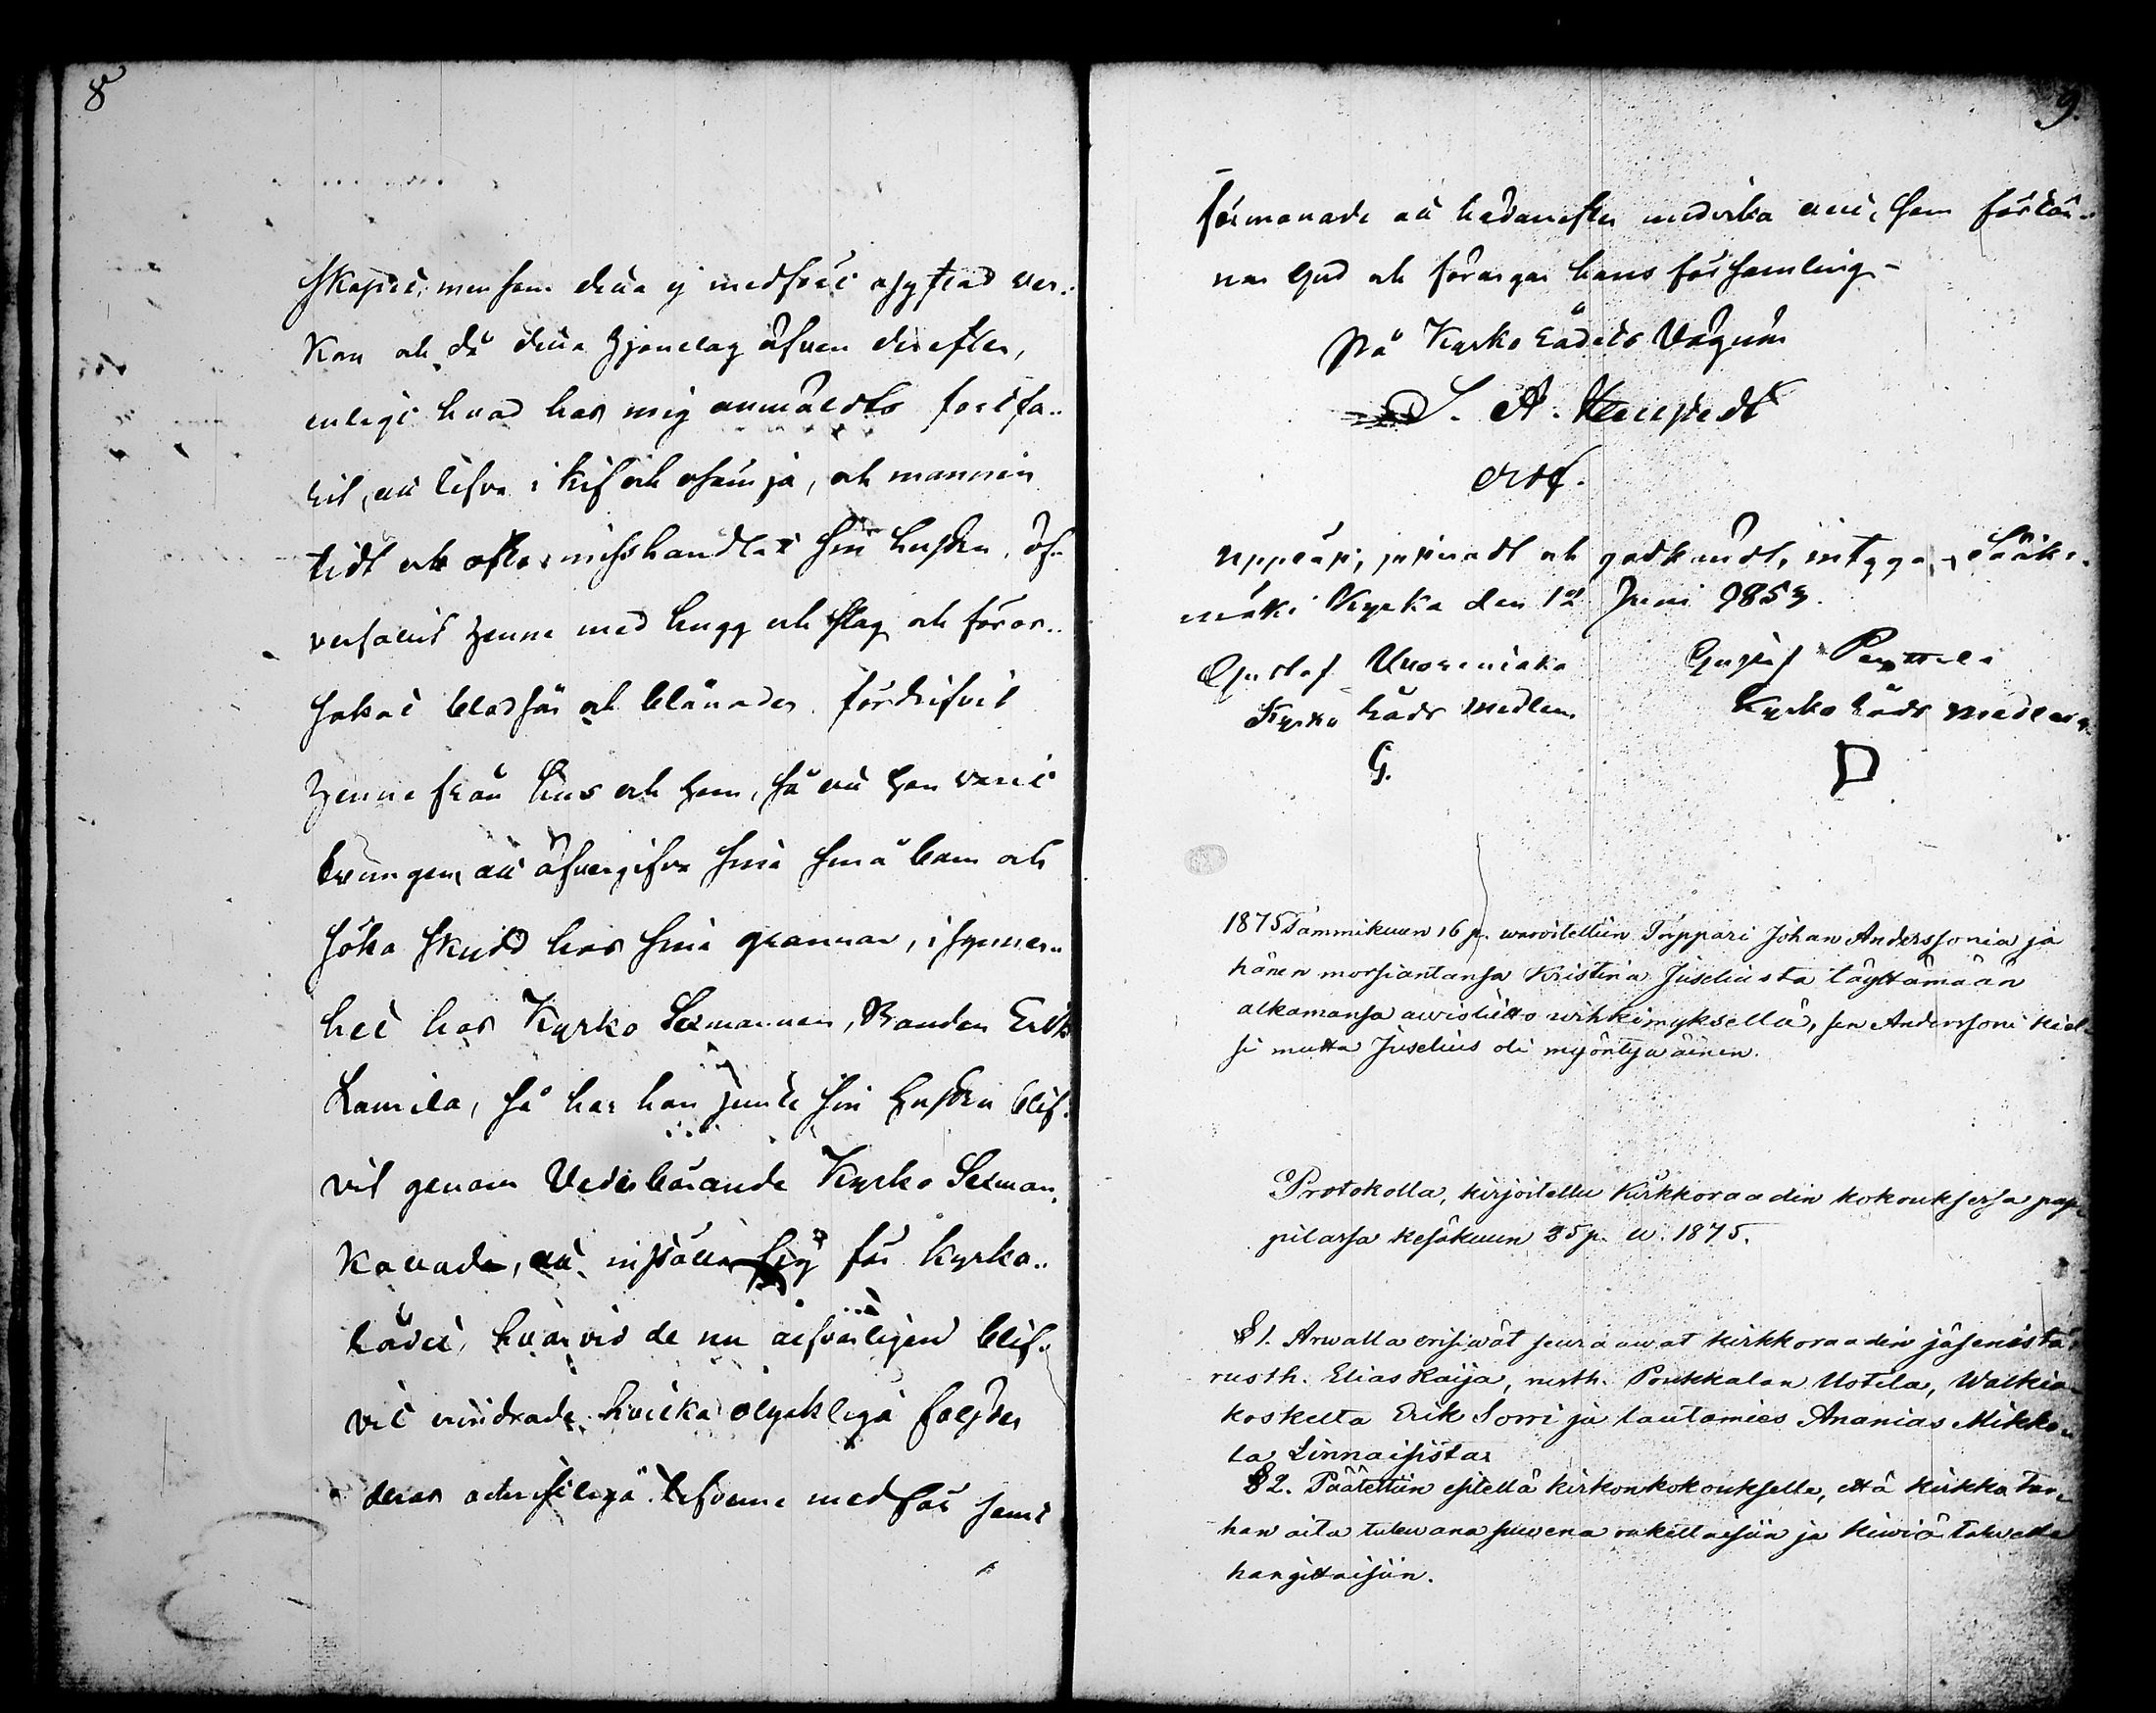 8
skapet; men som detta ej medfört åsyftad ver-
kan och då detta Hjonelag äfven derefter,
enligt hvad hos mig anmäldts fortfa-
rit, att lefva i kif och osämja, och mannen
tidt och ofta misshandlat sin hustru, öf-
verfallit henne med hugg och slag och föror-
sakat blodsår och blånader fördrifvit
henne från hus och hem, så att hon varit
tvungen att öfvergifva sina små barn och
söka skydd hos sina grannar, i synner-
het hos Kyrko Sexmannen, Bonden Erik
Lamila, så har han jemte sin hustru blif-
vit genom Vederbörande Kyrko Sexman
kallade, att inställa sig för Kyrko-
rådet, hvarvid de nu alfvarligen blif-
vit erindrade hvilka olyckliga följder
deras okristliga lefverne medför samt
9.
förmanade att hädanefter undvika allt, som förtör-
nar Gud och förargar hans församling-
På Kyrko Rådets Vägnar
S. A.
Uppläst, justeradt och godkändt, intyga, Sääks-
mäki Kyrka den 12 Juni 1853.
Gustaf
Gustaf
Kyrko Råds Medlem
Kyrko Råds medlem
G.
P
1875 Tammikuun 16 p. waroitettiin Torppari Johan Anderssonia ja
hänen morsiantansa Kristina Juseliusta täyttämään
alkamansa awioliitto wihkimyksellä, sen Andersson kiel-
si mutta Juselius oli myöntywäinen.
Protokolla, kirjoitettu Kirkkoraadin kokouksessa pap-
pilassa Kesäkuun 25 p. w. 1875.
§ 1. Arwalla erisiwät seuraawat kirkkoraadin jäsenistä:
rusth. Elias Kaija, rusth. Poukkalan Uotila, Walkia-
koskelta Erik Sorri ja lautamies Ananias Mikko-
la Linnaisista.
§ 2. Päätettiin esitellä kirkonkokoukselle, että kirkko tar-
han aita tulewana suwena rakettaisiin ja kiwiä talwella
hangittaisiin.